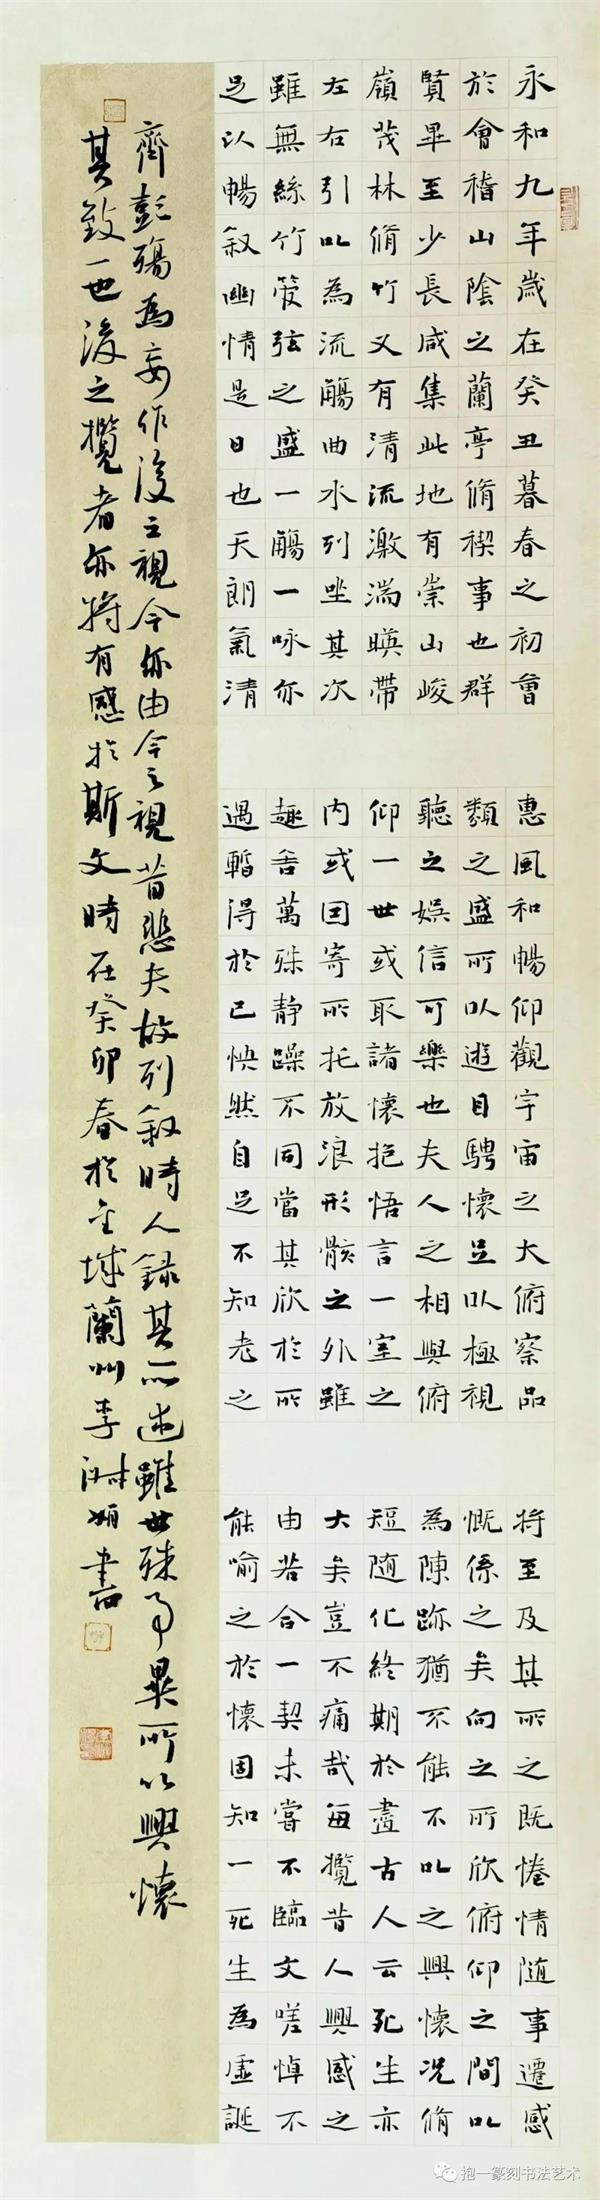 永和九年歲在癸丑暮春之初會
於會稽山陰之蘭亭脩禊事也群
賢畢至少長咸集此地有崇山峻
嶺茂林脩竹又有清流激湍暎帶
左右引以為流觴曲水列坐其次
雖無絲竹管弦之盛一觴一咏亦
足以暢叙幽情是日也天朗氣清
惠風和暢仰觀宇宙之大俯察品
類之盛所以遊目騁懷足以極視
聽之娛信可樂也夫人之相與俯
仰一世或取諸懷抱悟言一室之
内或因寄所托放浪形骸之外雖
趣舍萬殊静躁不同當其欣於所
遇暫得於己怏然自足不知老之
將至及其所之既惓情隨事遷感
慨係之矣向之所欣俯仰之間以
為陳跡猶不能不以之興懷況脩
短隨化終期於盡古人云死生亦
大矣豈不痛哉每攬昔人興感之
由若合一契未嘗不臨文嗟悼不
能喻之於懷固知一死生為虛誕
齊彭殤為妄作後之視今亦由今之視昔悲夫故列叙時人錄其所述雖世殊事異所以興懷
其致一也後之攬者亦將有感於斯文時在癸卯春於金城蘭州李書
抱一篆刻书法艺术